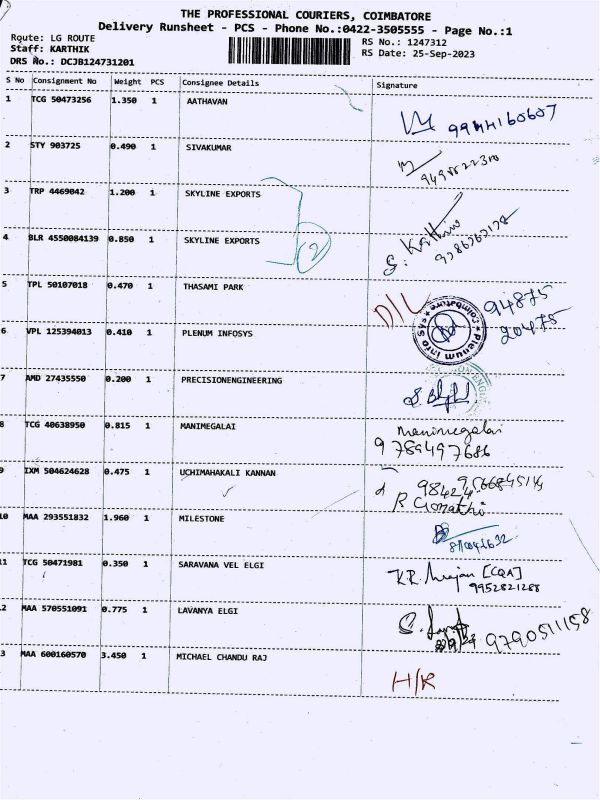 THE PROFESSIONAL COURIERS, COIMBATORE
Delivery Runsheet - PCS - Phone No.:0422-3505555 - Page No.:1
Route: LG ROUTE RS No.: 1247312
Staff: KARTHIK RS Date: 25-Sep-2023
DRS No.: DCJB124731201
S No Consignment No Weight PCS Consignee Details Signature
1 TCG 50473256 1.350 1 AATHAVAN 9944160607
2 STY 903725 0.490 1 SIVAKUMAR
3 TRP 4469042 1.200 1 SKYLINE EXPORTS
4 BLR 4550084139 0.850 1 SKYLINE EXPORTS
2
5 TPL 50107018 0.470 1 THASAMI PARK D/L 94875
20475
6 VPL 125394013 0.410 1 PLENUM INFOSYS
7 AMD 27435550 0.200 1 PRECISIONENGINEERING
8 TCG 40638950 0.815 1 MANIMEGALAI Manimegalai
9789497686
9 IXM 504624628 0.475 1 UCHIMAHAKALI KANNAN
R Gomathi
10 MAA 293551832 1.960 1 MILESTONE
11 TCG 50471981 0.350 1 SARAVANA VEL ELGI K.R. [CQA]
9952821288
2 MAA 570551091 0.775 1 LAVANYA ELGI 9790511158
3 MAA 600160570 3.450 1 MICHAEL CHANDU RAJ
H/R